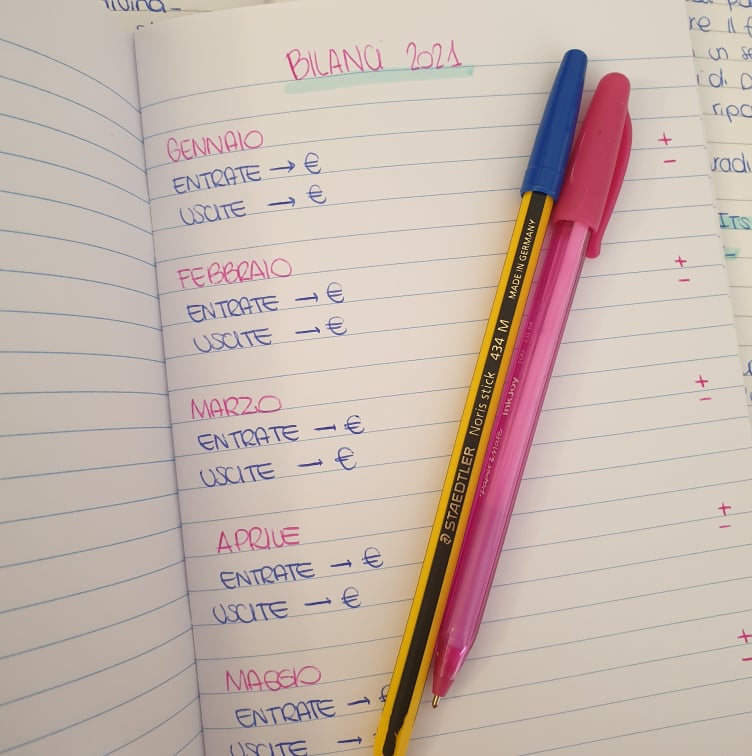 BILANCI 2021
GENNAIO
ENTRATE → €
USCITE → €
+
-
FEBBRAIO
ENTRATE → €
USCITE → €
+
-
MARZO
ENTRATE → €
USCITE → €
+
-
APRILE
ENTRATE → €
USCITE → €
+
-
MAGGIO
ENTRATE → €
USCITE →
+
-
STAEDTLER Noris stick 434 M MADE IN GERMANY
Paper Mate InkJoy
re il f
un se
di D
ripo
radi
ITS